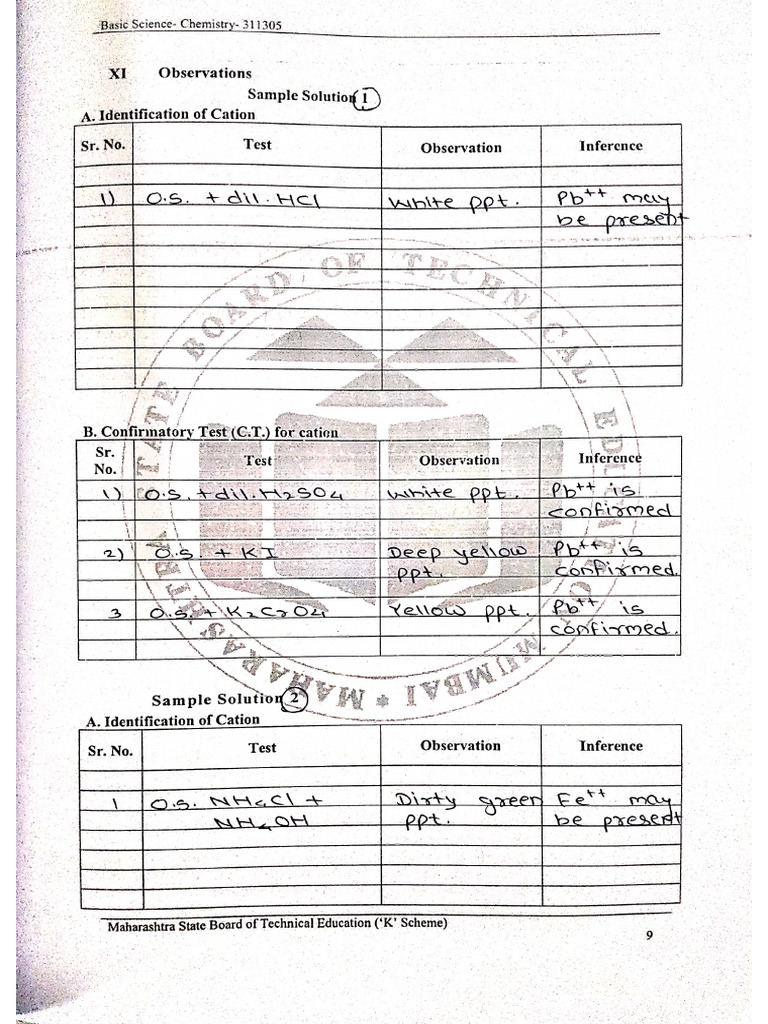 Basic Science- Chemistry- 311305
XI Observations
Sample Solution 1
A. Identification of Cation
Sr. No. Test Observation Inference
1) O.S. + dil. HCl White ppt. Pb++ may
be present
B. Confirmatory Test (C.T.) for cation
Sr.
No. Test Observation Inference
1) O.S. + dil. H2SO4 White ppt. Pb++ is
confirmed
2) O.S. + KI Deep yellow Pb++ is
ppt. confirmed.
3 O.S. + K2CrO4 Yellow ppt. Pb++ is
confirmed.
Sample Solution 2
A. Identification of Cation
Sr. No. Test Observation Inference
1 O.S. NH4Cl + Dirty green Fe++ may
NH4OH ppt. be present
Maharashtra State Board of Technical Education ('K' Scheme)
9
STATE BOARD OF TECHNICAL EDUCATION
MUMBAI * MAHARASHTRA